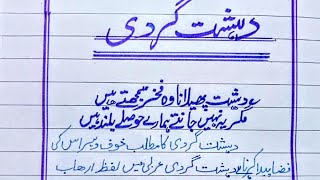 دہشت گردی
دہشت پھیلانا وہ فخر سمجھتے ہیں
مگر یہ نہیں جانتے ہمارے حوصلے بلند ہیں
دہشت گردی کا مطلب خوف و ہراس کی
فضا پیدا کرنا ہے دہشت گردی عربی میں لفظ ارھاب